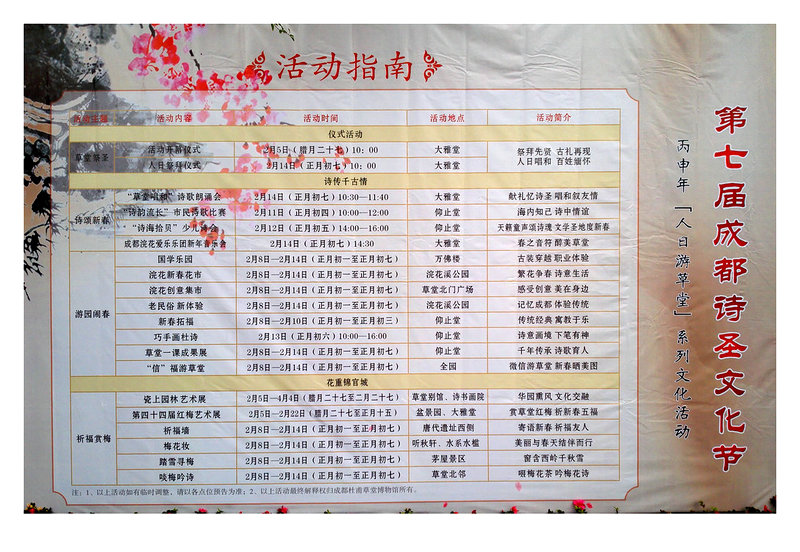 活动指南
活动主题 活动内容 活动时间 活动地点 活动简介
仪式活动
草堂祭圣
活动开幕仪式 2月5日（腊月二十七）10：00 大雅堂 祭拜先贤 古礼再现
人日祭拜仪式 2月14日（正月初七）10：00 大雅堂 人日唱和 百姓缅怀
诗传千古情
诗颂新春
“草堂唱和”诗歌朗诵会 2月14日（正月初七）10:30—11:40 大雅堂 献礼忆诗圣 唱和叙友情
“诗韵流长”市民诗歌比赛 2月11日（正月初四）10:00—12:00 仰止堂 海内知己 诗中情谊
“诗海拾贝”少儿诗会 2月12日（正月初五）14:00—16:00 仰止堂 天籁童声颂诗魂 文学圣地度新春
成都浣花爱乐乐团新年音乐会 2月14日（正月初七）14:30 大雅堂 春之音符 醉美草堂
游园闹春
国学乐园 2月8日—2月14日（正月初一至正月初七） 万佛楼 古装穿越 职业体验
浣花新春花市 2月8日—2月14日（正月初一至正月初七） 浣花溪公园 繁花争春 诗意生活
浣花创意集市 2月8日—2月14日（正月初一至正月初七） 草堂北门广场 感受创意 美在身边
老民俗 新体验 2月8日—2月14日（正月初一至正月初七） 浣花溪公园 记忆成都 体验传统
新春拓福 2月8日—2月10日（正月初一至正月初三） 仰止堂 传统经典 寓教于乐
巧手画杜诗 2月13日（正月初六）10:00—16:00 仰止堂 诗意画境 下笔有神
草堂一课成果展 2月8日—2月14日（正月初一至正月初七） 仰止堂 千年传承 诗歌育人
“信”福游草堂 2月8日—2月14日（正月初一至正月初七） 全园 微信游草堂 新春晒美图
花重锦官城
祈福赏梅
瓷上园林艺术展 2月5日—4月4日（腊月二十七至二月二十七） 草堂别馆、诗书画院 华园熏风 文化交融
第四十四届红梅艺术展 2月5日—2月22日（腊月二十七至正月十五） 盆景园、大雅堂 赏草堂红梅 祈新春五福
祈福墙 2月8日—2月14日（正月初一至正月初七） 唐代遗址西侧 寄语新春 祈福友人
梅花妆 2月8日—2月14日（正月初一至正月初七） 听秋轩、水系水槛 美丽与春天结伴而行
踏雪寻梅 2月8日—2月14日（正月初一至正月初七） 茅屋景区 窗含西岭千秋雪
啖梅吟诗 2月8日—2月14日（正月初一至正月初七） 草堂北邻 咽梅花茶 吟梅花诗
注：1、以上活动如有临时调整，请以各点位预告为准；2、以上活动最终解释权归成都杜甫草堂博物馆所有。
第七届成都诗圣文化节
丙申年「人日游草堂」系列文化活动